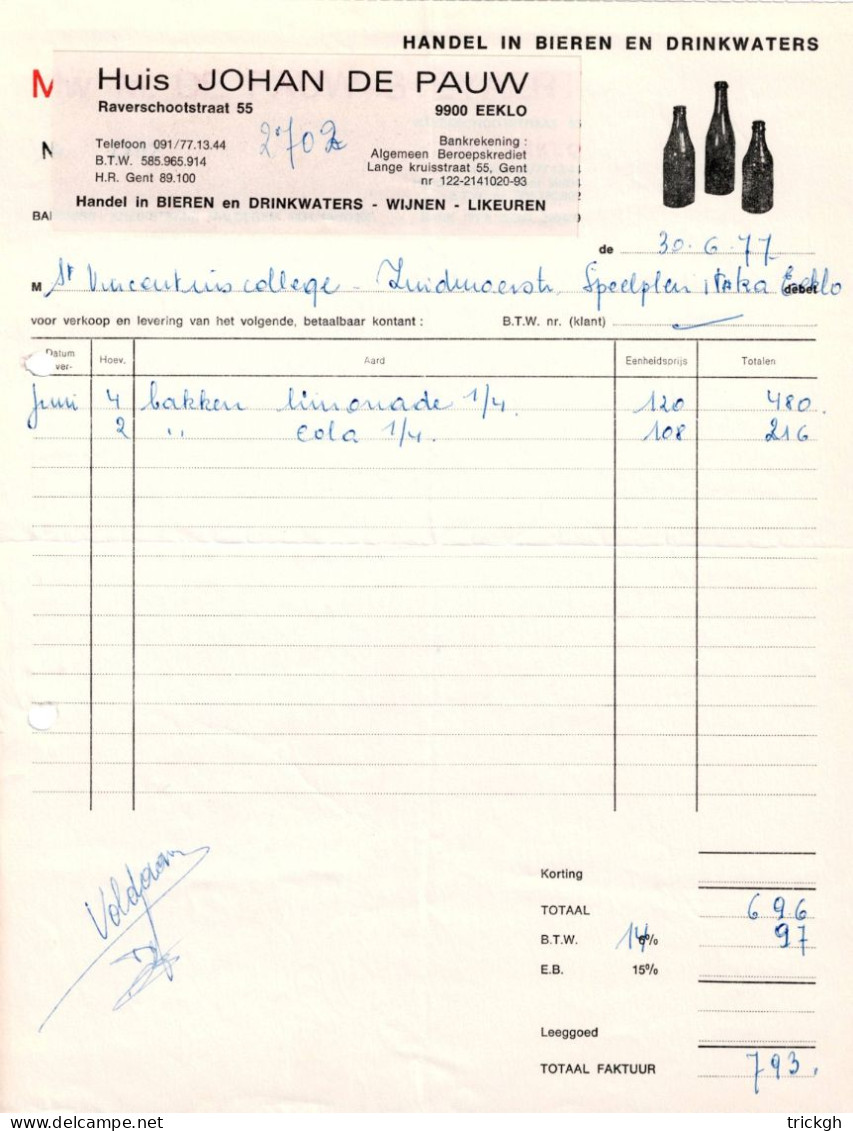 HANDEL IN BIEREN EN DRINKWATERS
M
Huis JOHAN DE PAUW
Raverschootstraat 55 9900 EEKLO
Telefoon 091/77.13.44
B.T.W. 585.965.914
H.R. Gent 89.100
2702
Bankrekening :
Algemeen Beroepskrediet
Lange kruisstraat 55, Gent
nr 122-2141020-93
Handel in BIEREN en DRINKWATERS - WIJNEN - LIKEUREN
N
BA
de 30.6.77
M St Vincentiuscollege - Zuidmoerstr. Speelplein Eeklo debet
voor verkoop en levering van het volgende, betaalbaar kontant : B.T.W. nr. (klant)
Datum ver- Hoev. Aard Eenheidsprijs Totalen
Juni 4 bakken limonade 1/4. 120 480.
2 " cola 1/4. 108 216
Korting
TOTAAL 696
B.T.W. 14% 97
E.B. 15%
Leeggoed
TOTAAL FAKTUUR 793.
Voldaan
trickgh